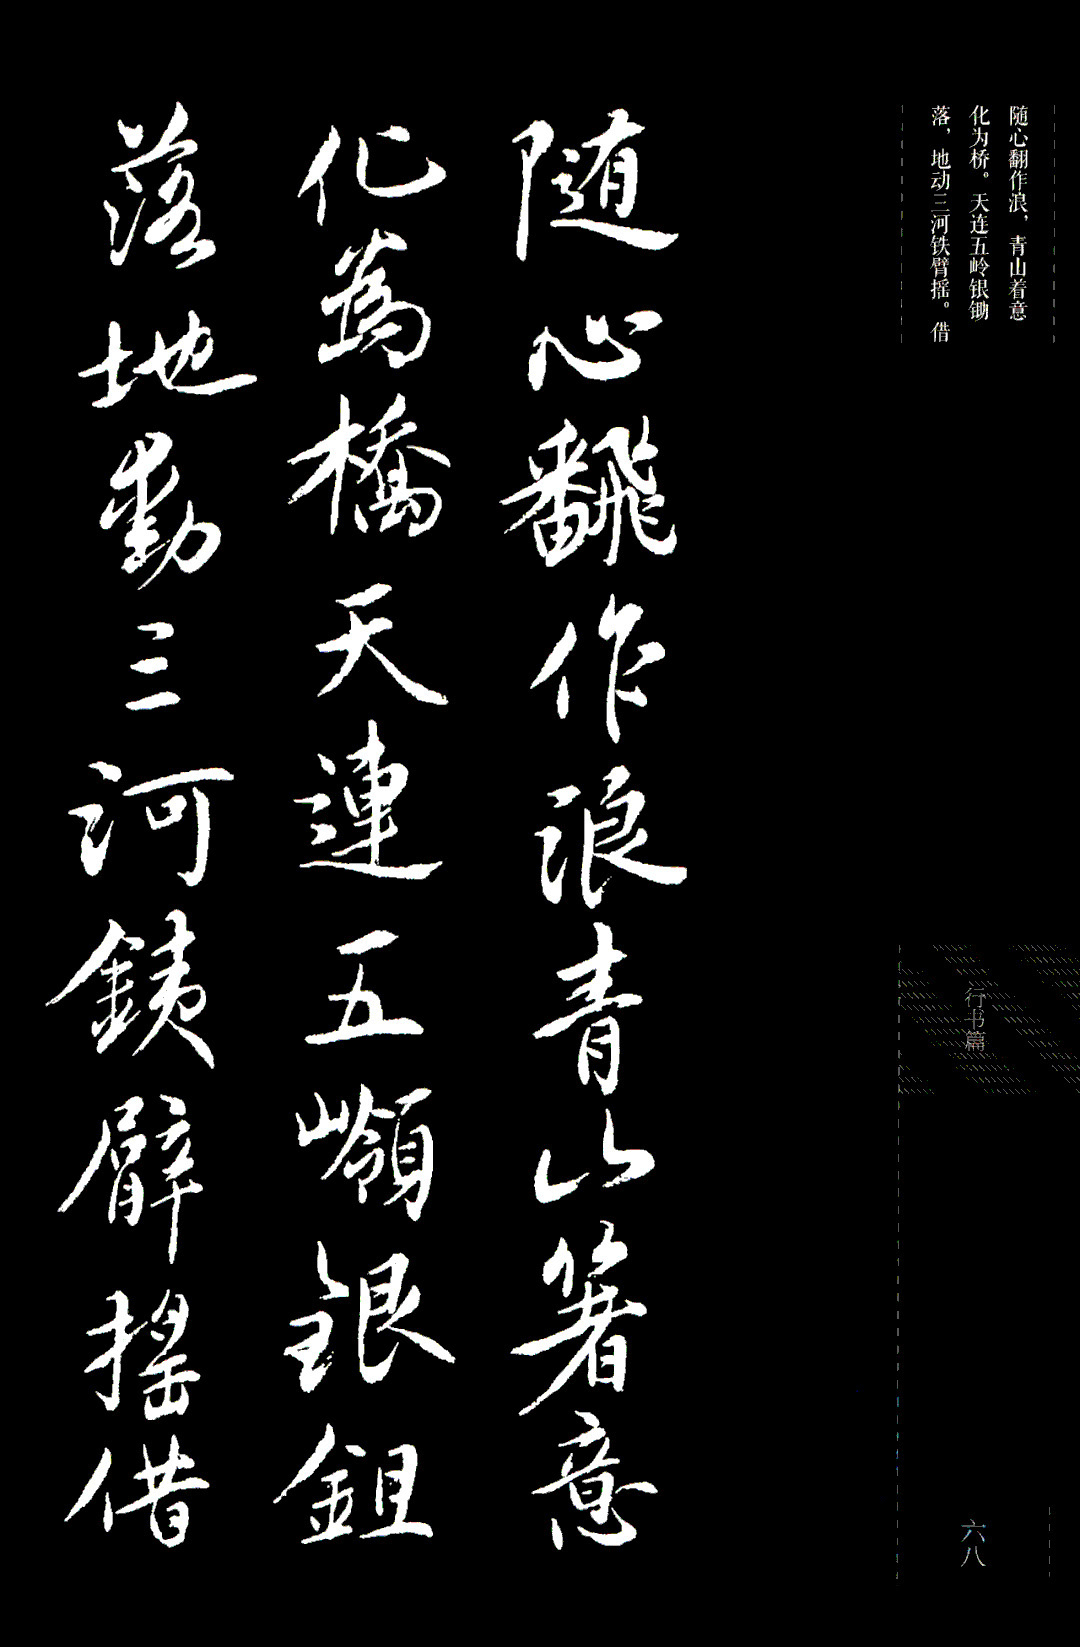 随心翻作浪，青山着意
化为桥。天连五岭银锄
落，地动三河铁臂摇。借
随心翻作浪青山箸意
化為橋天連五嶺銀鉏
落地動三河鐵臂摇借
行书篇
六八